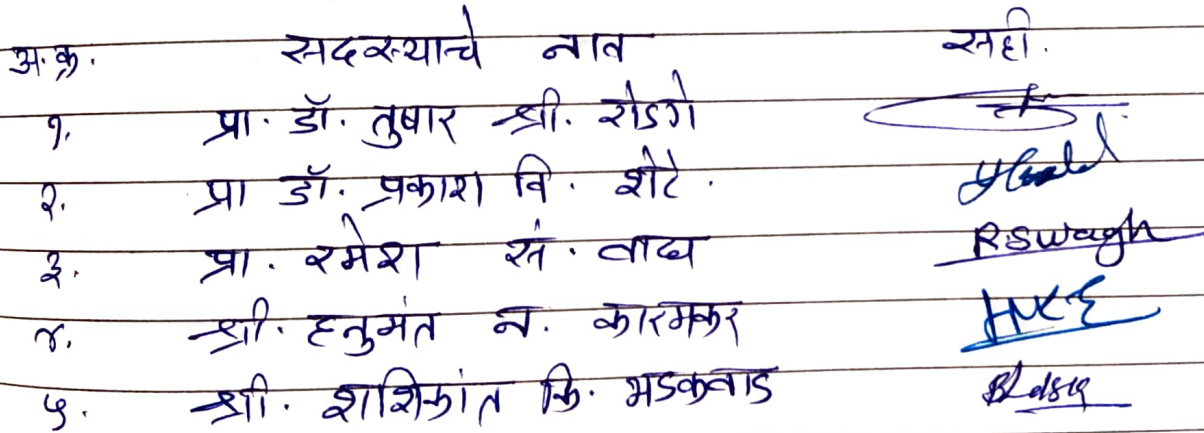 अ. क्र. सदस्याचे नाव सही.
१. प्रा. डॉ. तुषार श्री. रोडगे
२. प्रा डॉ. प्रकाश वि. शेटे.
३. प्रा. रमेश सं. वाघ R.S.Wagh
४. श्री. हनुमंत न. कारमकर
५. श्री. शशिकांत कि. भडकवाड